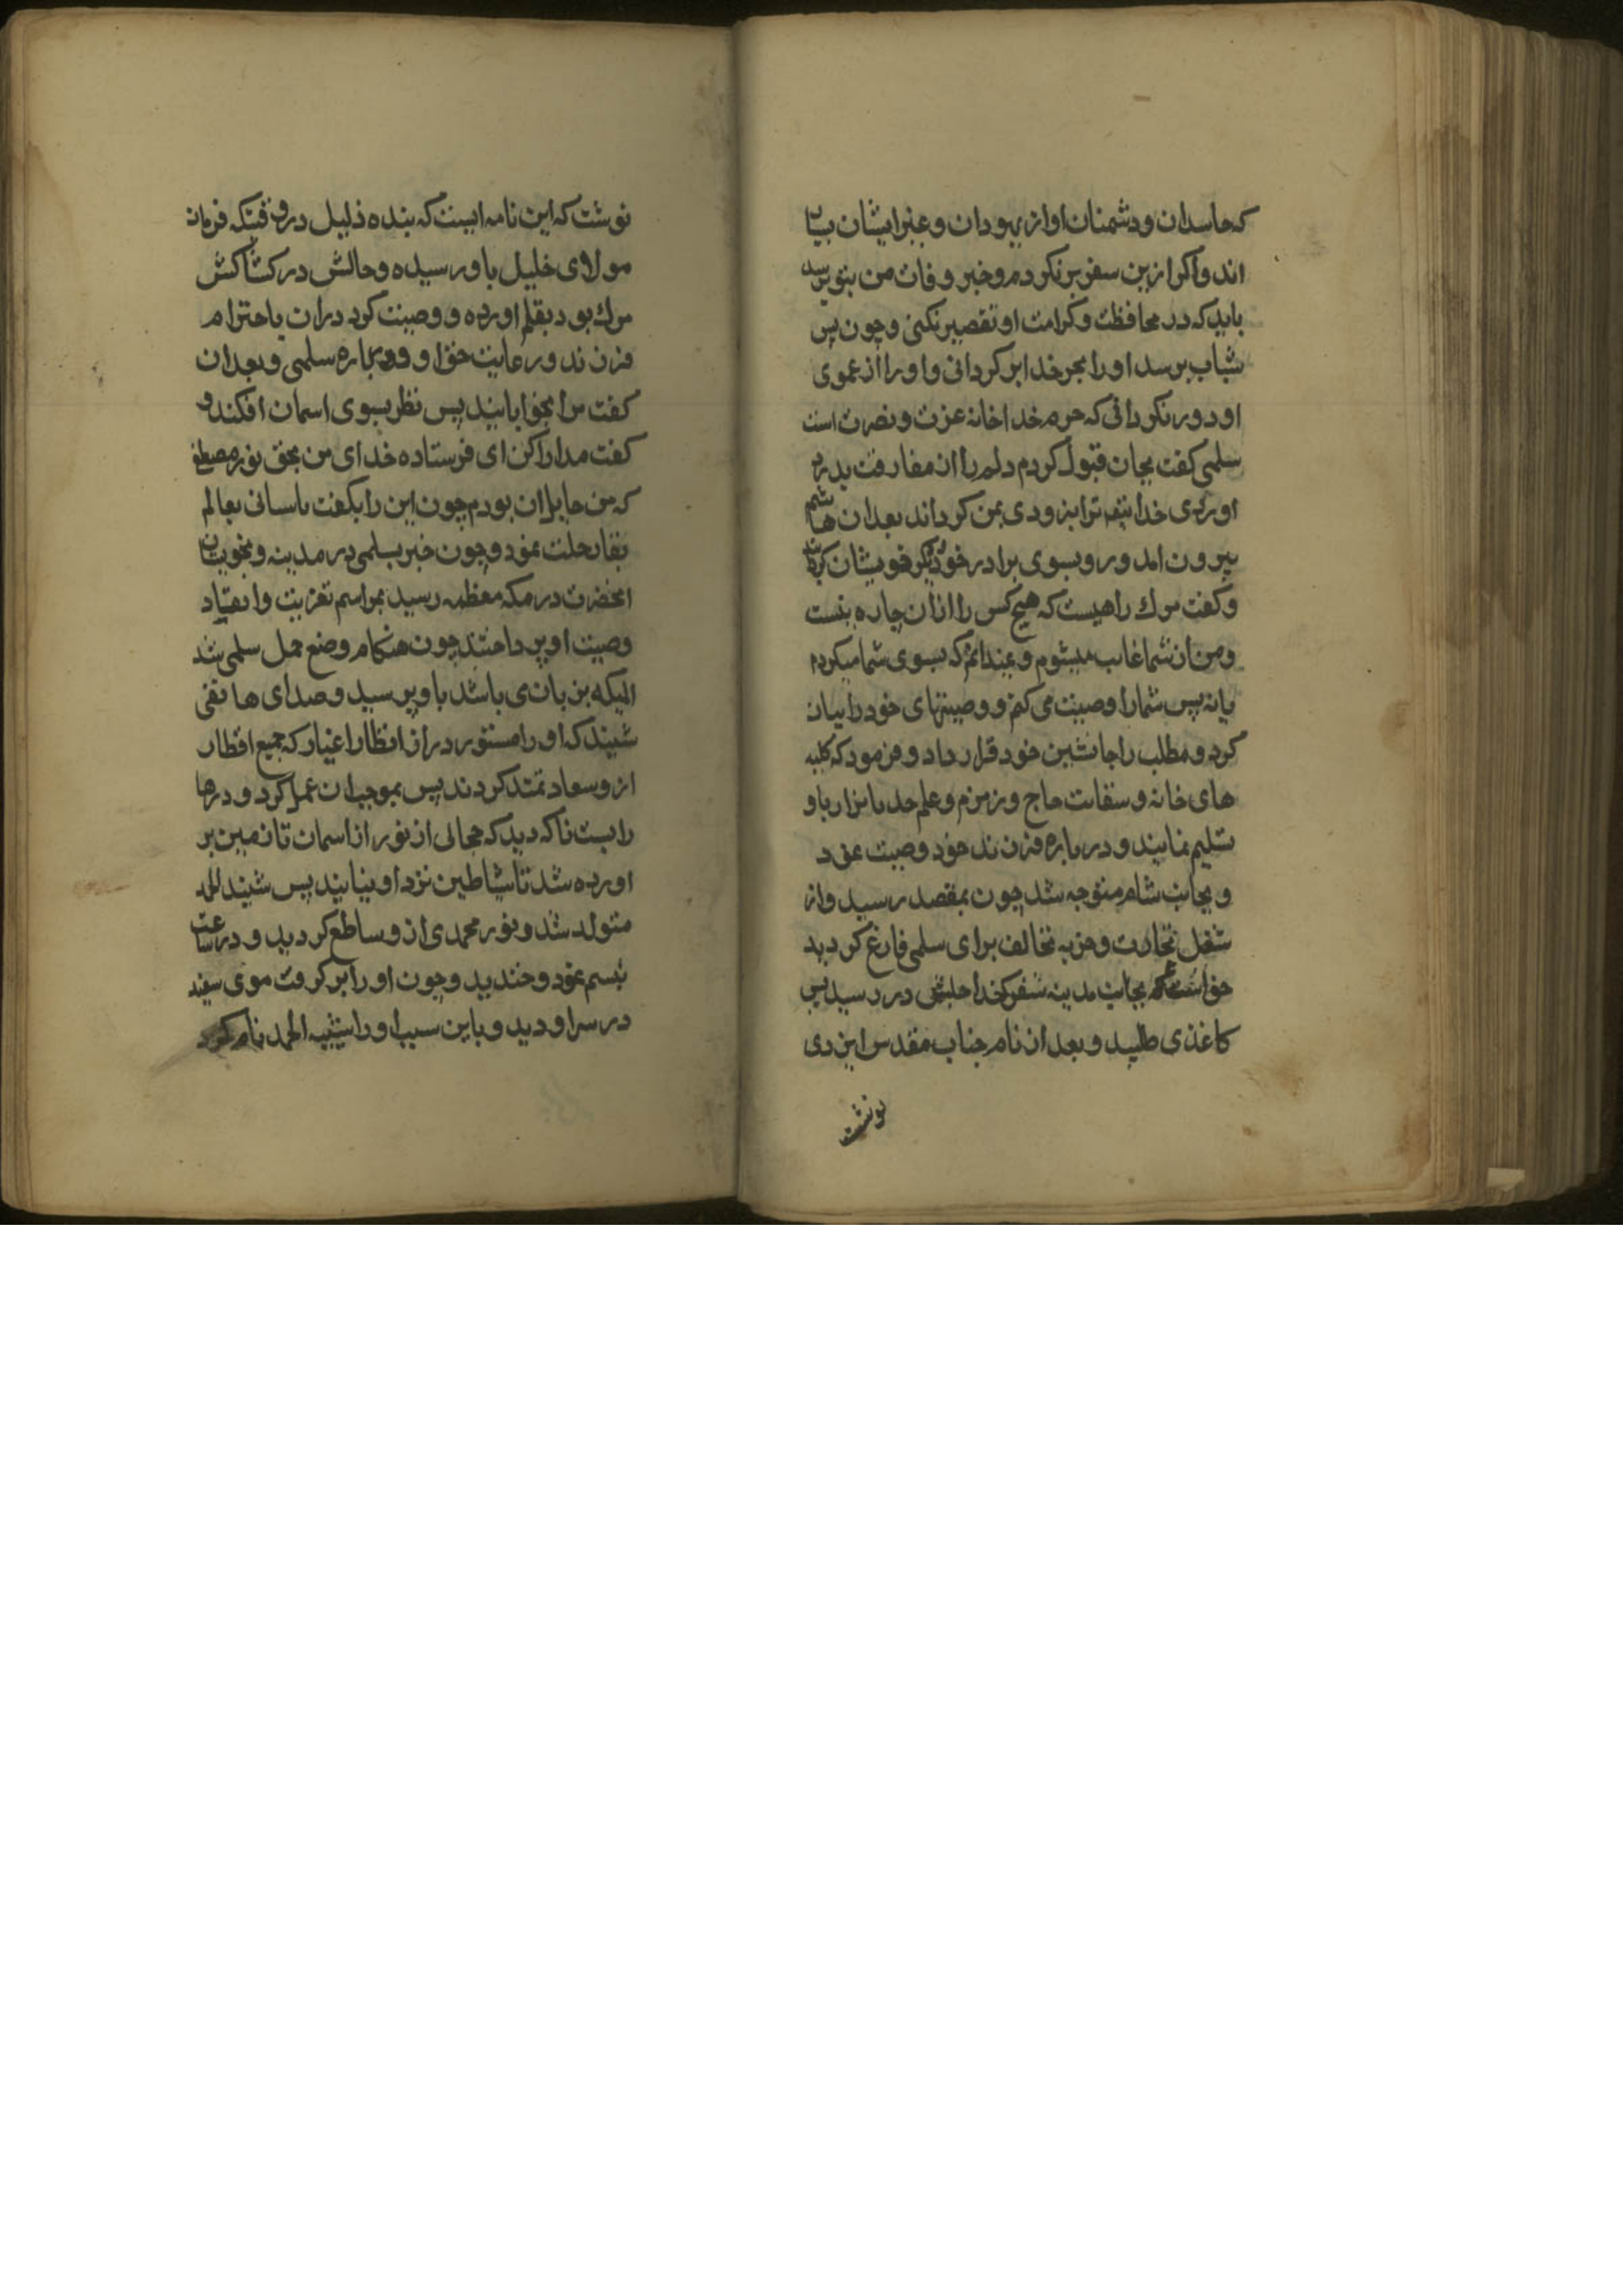 که حاسدان و دشمنان او از یهودان و غیر ایشان بسیار
اند و اکر ازین سفر بر نکردم و خبر وفات من بتو برسد
باید که در محافظت و کرامت او تقصیر نکنی و چون بسن
شباب برسد او را بحرم خدا بر کردانی و او را از عموی
او دور نکردانی که حرم خدا خانه عزت و نصرت است
سلمی کفت بجان قبول کردم دلم را از مفارقت بدرد
اوردی خدا ترا بزودی بمن کرداند بعد از ان هاشم
بیرون امد و رو بسوی برادر خود و دیکر خویشان کرداند
و کفت مرك راهیست که هیچ کس را از ان چاره نیست
و من از شما غایب میشوم و نمیدانم که بسوی شما میکردم
یا نه پس شما را وصیت می کنم و وصیتهای خود را بیان
کرد و مطلب را جانشین خود قرار داد و فرمود که کلید
های خانه و سقایت حاج و زمزم و علم جد ما نزار باو
تسلیم نمایند و در باره فرزند خود وصیت نمود
و بجانب شام متوجه شد چون بمقصد رسید و از
شغل تجارت و خریه تخالف برای سلمی فارغ کردید
خواست که بجانب مدینه سفر کند در رسید پس
کاغذی طلبید و بعد از نام جناب مقدس ایزدی
نوشت
نوشت که این نامه ایست که بنده ذلیل در وقتیکه فرمان
مولای خلیل باو رسیده و حالش در کشاکش
مرك بود بقلم اورده و وصیت کرد در ان باحترام
فرزند و رعایت حق او و در باره سلمی و بعد از ان
کفت مرا بخوابانید پس نظر بسوی اسمان افکند و
کفت مدارا کن ای فرستاده خدای من بحق نور مصطفی
که من حامل ان بودم چون این را بکفت باسانی بعالم
بقا رحلت نمود و چون خبر بسلمی در مدینه و بخویشان
انحضرت در مکه معظمه رسید بمراسم تعزیت و انقیاد
وصیت او پرداختند چون هنکام وضع حمل سلمی شد
المیکه بزبانی باشد باو پرسید و صدای هاتفی
شنید که او را مستور در از انظار اغیار که جمیع اقطار
از و سعادتمند کردند پس بموجب ان عمل کرد و درها
را بست ناکه دید که حجابی از نور از اسمان تا زمین بر
اورده شد تا شیاطین نزد او نیایند پس شیبه الحمد
متولد شد و نور محمدی از و ساطع کردید و در ساعت
تبسم نمود و خندید و چون او را بر کرفت موی سفید
در سر او دید و باین سبب او را شیبه الحمد نام کرد